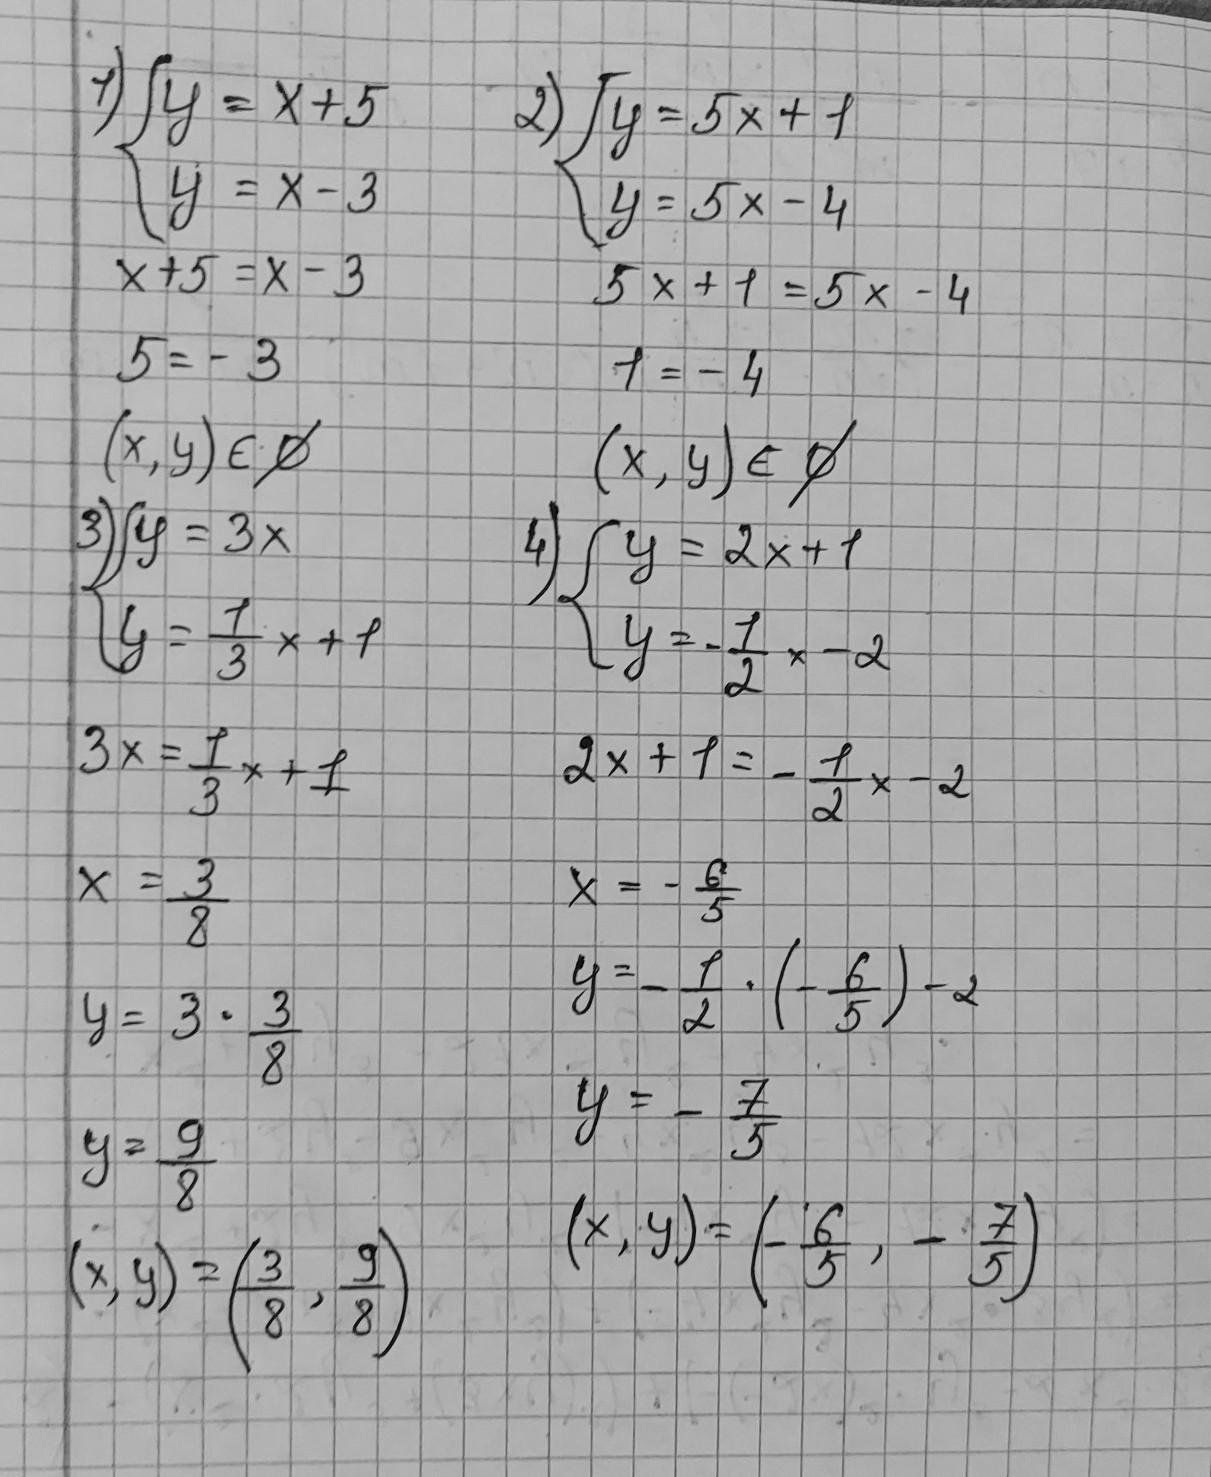 1) { y = x + 5
y = x - 3
x + 5 = x - 3
5 = - 3
(x, y) ∈ ∅
2) { y = 5x + 1
y = 5x - 4
5x + 1 = 5x - 4
1 = - 4
(x, y) ∈ ∅
3) { y = 3x
y = 1/3 x + 1
3x = 1/3 x + 1
x = 3/8
y = 3 · 3/8
y = 9/8
(x, y) = (3/8, 9/8)
4) { y = 2x + 1
y = - 1/2 x - 2
2x + 1 = - 1/2 x - 2
x = - 6/5
y = - 1/2 · (- 6/5) - 2
y = - 7/5
(x, y) = (- 6/5, - 7/5)